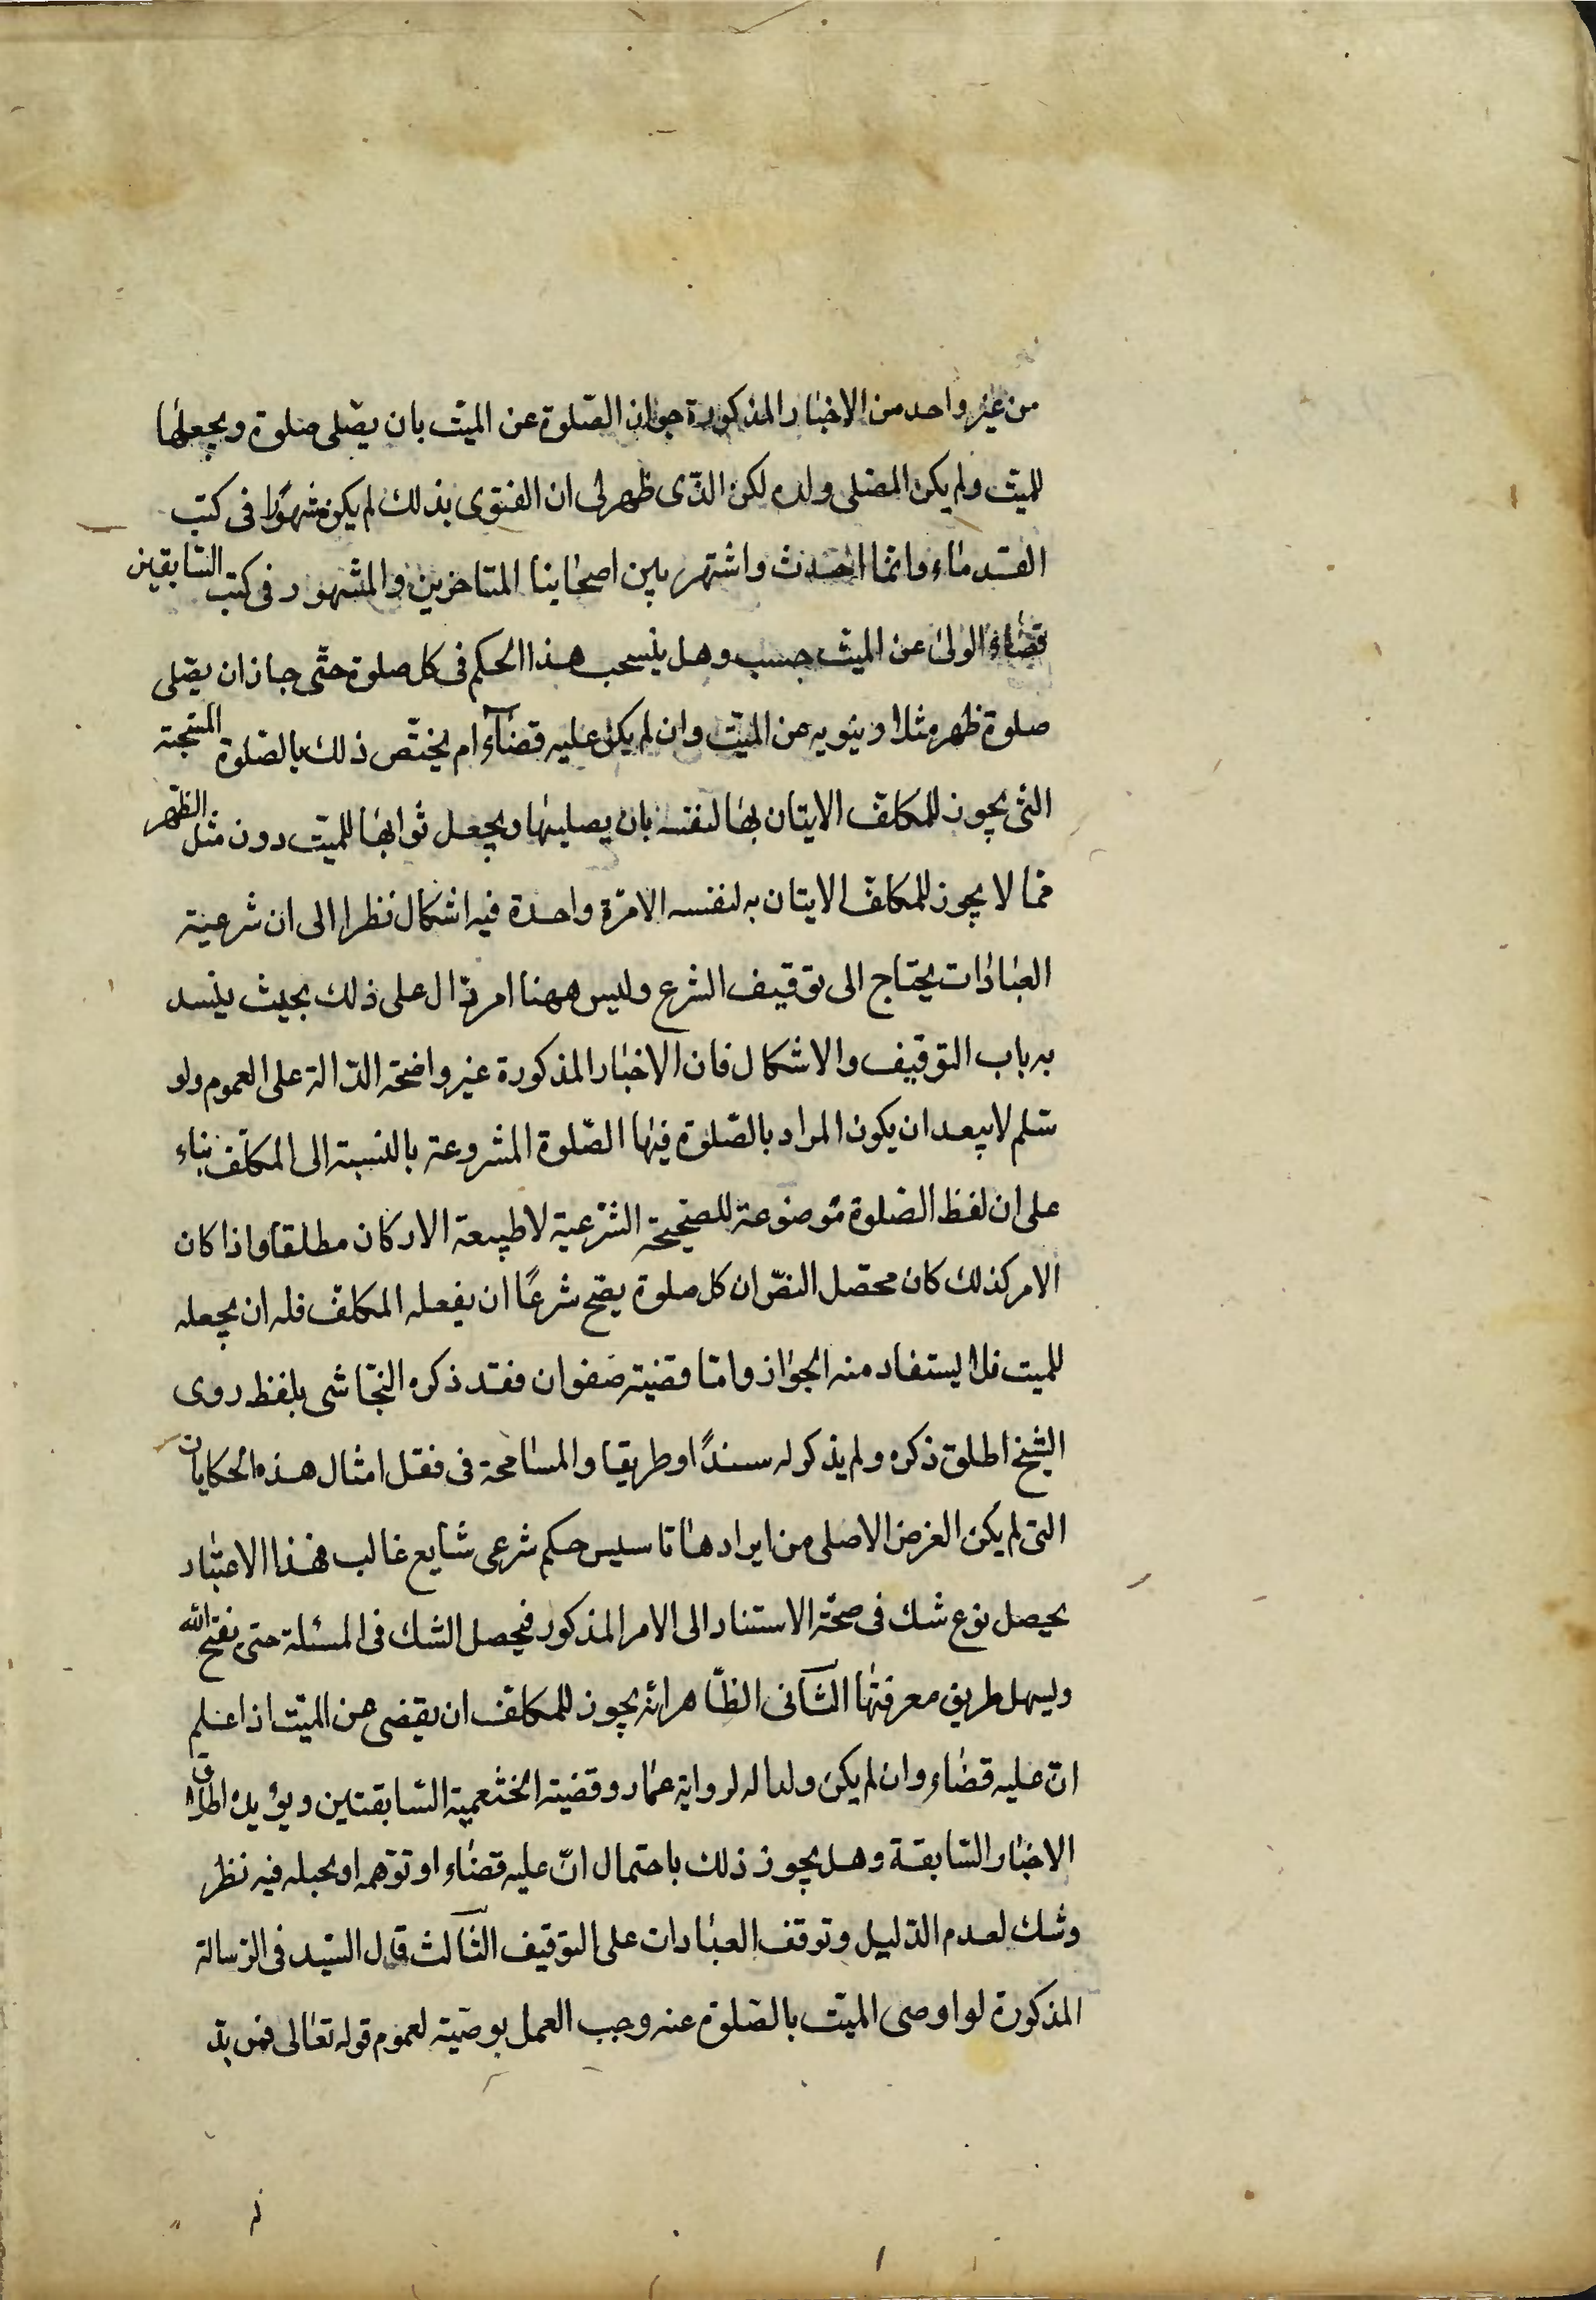 من غير واحد من الاخبار المذكورة جواز الصّلوة عن الميّت بان يصّلى صلوة ويجعلها
للميّت ولم يكن المصلى ولده لكن الذّى ظهر لى ان الفتوى بذلك لم يكن مشهورًا فى كتب
القدماء وانما احدث واشتهر بين اصحابنا المتاخرين والمشهور فى كتب السّابقين
قضاء الولىّ عن الميّت حسب وهل ينسحب هذا الحكم فى كل صلوة حتّى جاز ان يصّلى
صلوة ظهر مثلا وينويه عن الميّت وان لم يكن عليه قضآء ام يختّص ذلك بالصّلوة المستحبّة
التى يجوز للمكلّف الايتان بها لنفسه بان يصليها ويجعل ثوابها للميّت دون مثل الظّهر
ممّا لا يجوز للمكلّف الايتان به لنفسه الا مرّة واحدة فيه اشكال نظرا الى ان شرعيّة
العبادات يحتاج الى توقيف الشرع وليس ههنا امر دّال على ذلك بحيث ينسد
به باب التوقيف والاشكال فان الاخبار المذكورة غير واضحة الدّالة على العموم ولو
سّلم لا يبعد ان يكون المراد بالصّلوة فيها الصّلوة المشروعة بالنسبة الى المكلّف بناء
على ان لفظ الصّلوة موضوعة للصّحيحة الشّرعيّة لا طبيعة الاركان مطلقا واذا كان
الامر كذلك كان محصّل النصّ ان كل صلوة يصّح شرعًا ان يفعله المكلّف فله ان يجعله
للميت فلا يستفاد منه الجواز وامّا قضيّة صفوان فقد ذكره النجّاشى بلفظ روى
الشّيخ اطلق ذكره ولم يذكر له سندًا وطريقا والمسامحة فى نقل امثال هذه الحكايات
التى لم يكن الغرض الاصلى من ايرادها تاسيس حكم شرعى شايع غالب فهذا الاعتبار
يحصل نوع شك فى صحّة الاستناد الى الامر المذكور فيحصل الشك فى المسئلة حتى يفتح الله
ويسهل طريق معرفتها الثّآنى الظّاهر انّه يجوز للمكلّف ان يقضى عن الميّت اذا علم
انّ عليه قضاء وان لم يكن ولدا له لرواية عمّار وقضيّة الخثعميّة السّابقتين ويؤيده اطلاق
الاخبار السّابقة وهل يجوز ذلك باحتمال انّ عليه قضاء او توّهمه او يجبله فيه نظر
وشك لعدم الدّليل وتوقف العبادات على التوقيف الثّآلث قال السّيد فى الرّسالة
المذكورة لو اوصى الميّت بالصّلوة عنه وجب العمل بوصيّته لعموم قوله تعالى فمن بدّ